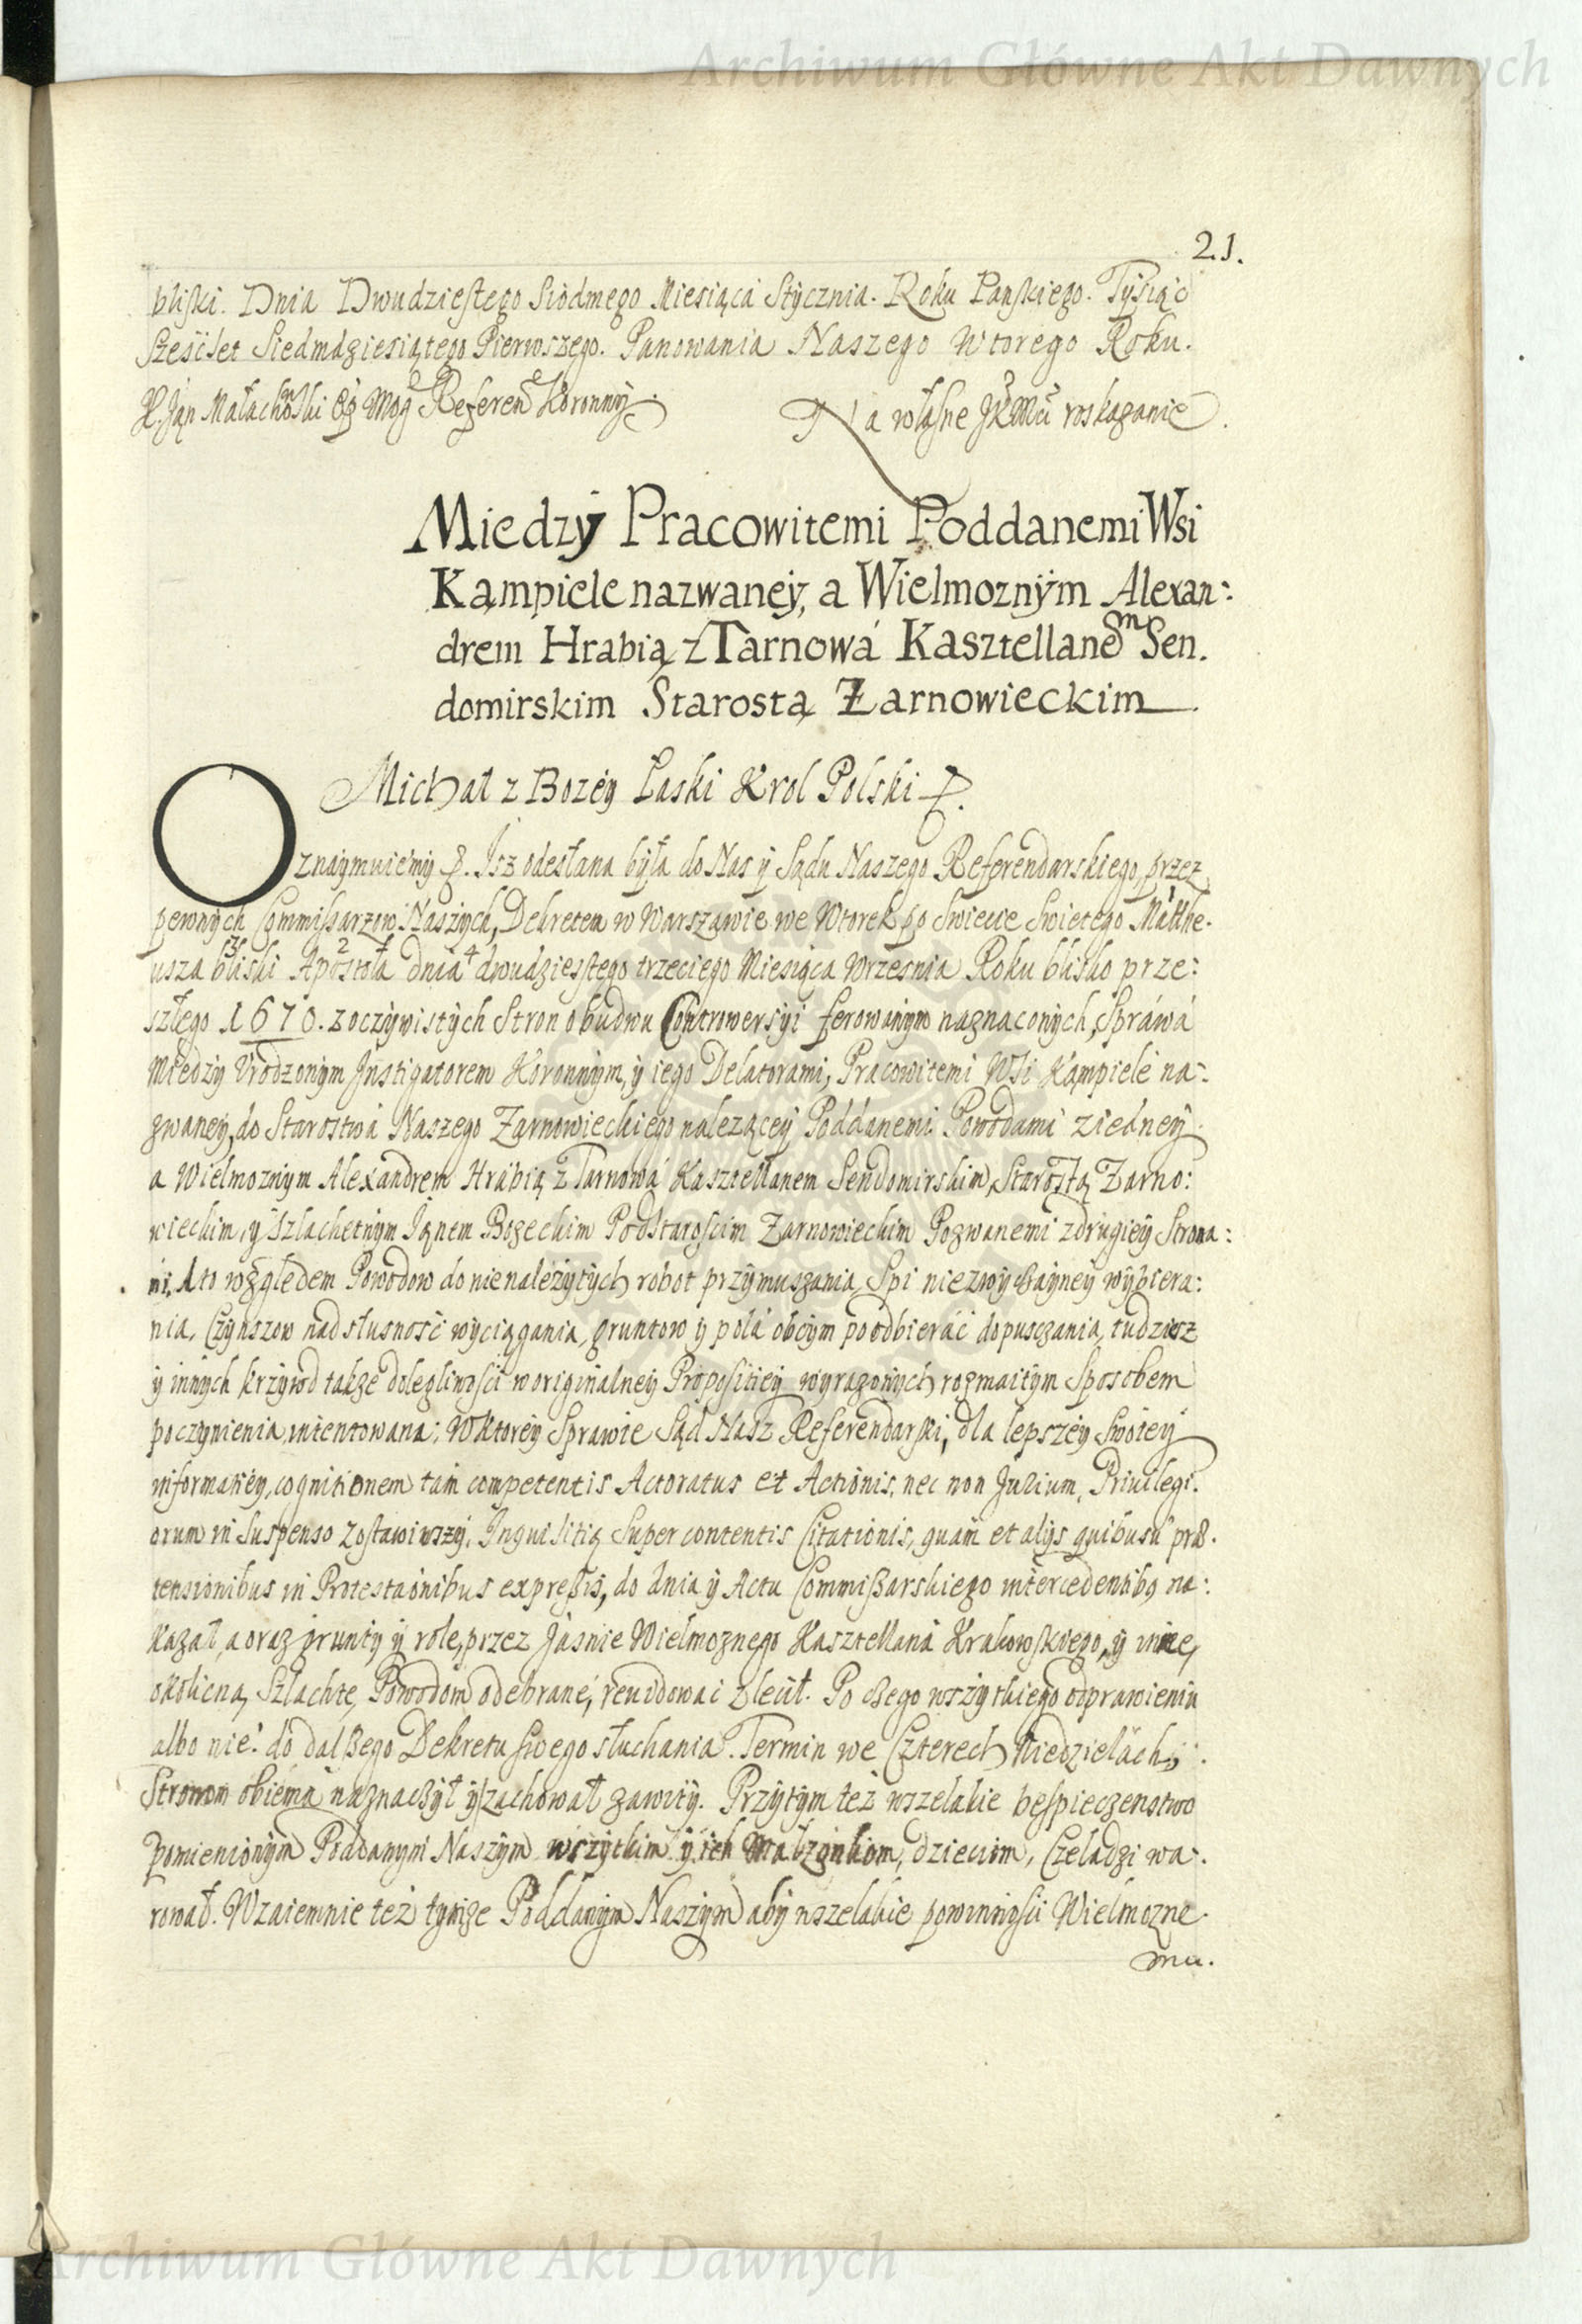 Archiwum Główne Akt Dawnych
21.
bliski. Dnia Dwudziestego Siodmego Miesiąca Stycznia. Roku Pańskiego. Tysiąc
Sześćset Siedmdziesiątego Pierwszego. Panowania Naszego Wtorego Roku.
X. Jan Małachowski Referen Koronny
Na własne JKMći roskazanie.
Miedzy Pracowitemi Poddanemi Wsi
Kąmpiele nazwaney, a Wielmoznym Alexan:
drem Hrabią z Tarnowá Kasztellanem Sen.
domirskim Starostą Zarnowieckim
Michał z Bozey Łaski Krol Polski
Oznaymuiemy. Isz odesłana była do Nas y Sądu Naszego Referendarskiego, przez
pewnych Commissarzow Naszych, Dekretem w Warszawie we Wtorek po Swiecie Swietego Matthe.
usza bliski 3 Apostoła 2 dnia 4 dwudziestego trzeciego Miesiąca Wrzesnia Roku blisko prze:
szłego 1670. z oczywistych Stron obudwu Controwersyi ferowanym naznaconych, Spráwá
Miedzy Vrodzonym Instigatorem Koronnym, y iego Delatorami, Pracowitemi Wsi Kąmpiele na:
zwaney, do Starostwá Naszego Zarnowieckiego nalezącey Poddanemi Powodami ziedney
a Wielmoznym Alexandrem Hrabią z Tarnowá Kasztellanem Sendomirskim, Starostą Zarno:
wieckim, y Szlachetnym Janem Bozeckim Podstarościm Zarnowieckim Pozwanemi zdrugiey Strona:
mi. A to względem Powodow do nienależytych robot przymuszania, Spi niezwyczayney wybiera:
nia, Czynszow nad słusność wyciągania, gruntow y polá obcym poodbieráć dopusczania, tudziesz
y innych krzywd także dolegliwości w originalney Propositiey wyrazonych rozmaitym Sposobem
poczynienia intentowana; Wktorey Sprawie Sąd Nasz Referendarski, dla lepszey Swoiey
informatiey, cognitionem tam competentis Actoratus et Actionis, nec non Jurium, Priuilegi.
orum in Suspenso zostawiwszy, Inquisitią Super contentis Citationis, quam et alys quibusu præ.
tensionibus in Protestaónibus expressis, do dnia y Actu Commissarskiego intercedentibg na:
kazał, a oraz grunty y role, przez Jasnie Wielmoznego Kasztellaná Krakowskiego, y inne,
okoliczną Szlachte, Powodom odebrane, reuidowac zlecił. Po czego wszytkiego odprawieniu
albo nie: do dalszego Dekretu swego słuchania. Termin we Czterech Niedzielách.
Stronom obiema naznaczył y zachował zawity. Przytym też wszelakie bespieczenstwo
pomienionym Poddanym Naszym wszytkim y ich Małzonkom, dzieciom, Czeladzi wa:
rował. Wzaiemnie też tymze Poddanym Naszym aby wszelakie powinności Wielmozne
mu.
Archiwum Główne Akt Dawnych